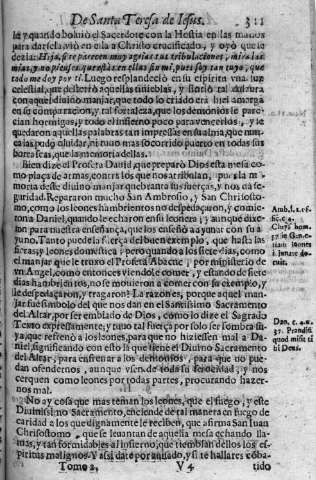 De Santa Teresa de Iesus. 311
la y quando boluiò el Sacerdote con la Hostia en las manos
para darsela, viò en ella a Christo crucificado, y oyò que le
dezia: Hija, si te parecen muy agrias tus tribulaciones, mira las
mias, y no pienses que estàs en ellas sin mi, pues soy tan tuyo, que
todo me doy por ti. Luego resplandeciò en su espiritu vna luz
celestial, que desterrò aquellas tinieblas, y sintiò tal dulçura
con aquel diuino manjar, que todo lo criado era hiel amarga
en su comparacion; y tal fortaleza, que los demonios le pare-
cian hormigas, y todo el infierno poco para vencerlos, y le
quedaron aquellas palabras tan impressas en su alma, que nun-
ca las pudo oluidar, ni tuuo mas socorrido puerto en todas sus
borrascas, que la memoria dellas.
Bien dize el Profeta Dauid, que preparò Dios esta mesa co-
mo plaça de armas, contra los que nos atribulan, pues la me-
moria deste diuino manjar quebranta sus fuerças, y nos da se-
guridad. Repararon mucho San Ambrosio, y San Chrisosto-
mo, como los leones hambrientos no despedaçaron, y comie-
ron a Daniel, quando le echaron en su leonera; y aunque dixe-
ron para nuestra enseñança, que los enseñò a ayunar con su a-
yuno. Tanto puede la fuerça del buen exemplo, que hasta las
fieras, y leones domestica: pero quando a los siete dias, como
el manjar que le truxo el Profeta Abacuc, por ministerio de
vn Angel, como entonces viendole comer, y estando de siete
dias hambrientos, no se mouieron a comer con su exemplo, y
le despedaçaron, y tragaron? La razon es, porque aquel man-
jar fue simbolo del que nos dan en el Santissimo Sacramento
del Altar, por ser emblado de Dios, como lo dize el Sagrado
Texto expressamente, y tuuo tal fuerça por solo ser sombra su-
ya, que refrenò a los leones, para que no hiziessen mal a Da-
niel; significando con esto la que tiene el Diuino Sacramento
del Altar, para enfrenar a los demonios, para que no pue-
dan ofendernos, aunque vsen de toda su ferocidad, y nos
cerquen como leones por todas partes, procurando hazer-
nos mal.
No ay cosa que mas teman los leones, que el fuego, y este
Diuinissimo Sacramento, enciende de tal manera en fuego de
caridad a los que dignamente le reciben, que afirma San Iuan
Chrisostomo, que se leuantan de aquella mesa echando lla-
mas, y tan formidables al infierno, que tiemblan dellos los es-
piritus malignos. Y assi date por auisado, y si te hallares comba-
Tomo 2. V 4 tido
Amb. l.
Chrys. hom.
Dan. c. 4.
Prandiũ
quod misit ti
bi Deus.